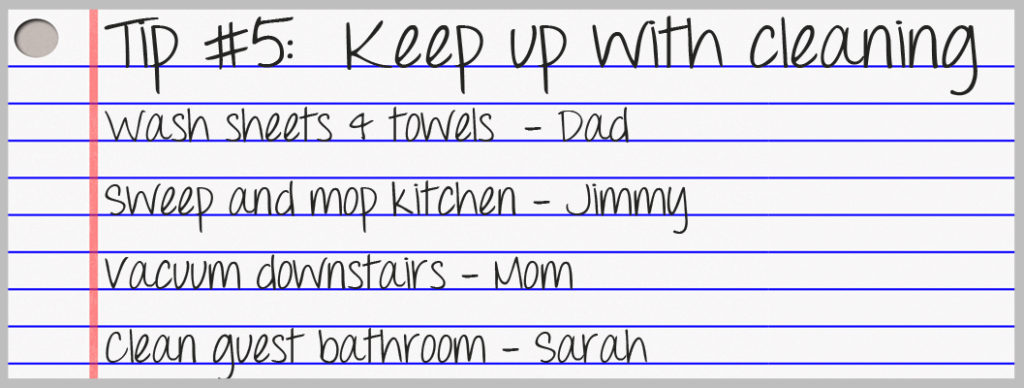 Tip #5: Keep up with cleaning
Wash sheets & towels - Dad
Sweep and mop kitchen - Jimmy
Vacuum downstairs - Mom
Clean guest bathroom - Sarah